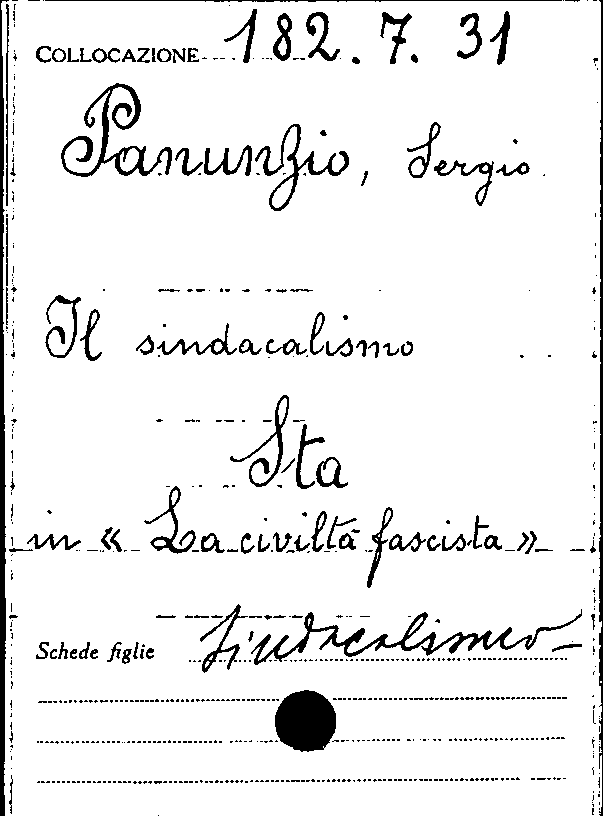 COLLOCAZIONE 182.7.31
Panunzio, Sergio
Il sindacalismo
Sta
in « La civiltà fascista »
Schede figlie Sindacalismo